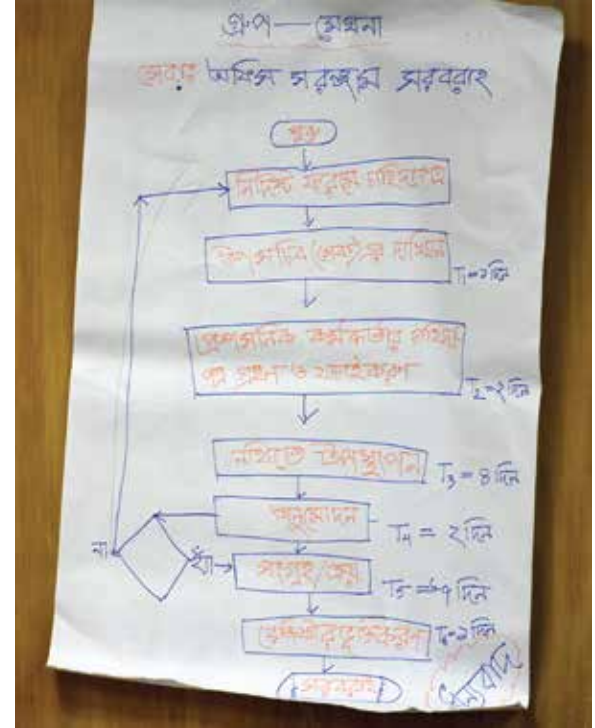 গ্রুপ — মেঘনা
সেবার অফিস সরঞ্জাম সরবরাহ
শুরু
নির্দিষ্ট ফরমে চাহিদাপত্র
উপসচিব (সেবা) এর দাখিল
T₁=১দিন
প্রশাসনিক কর্মকর্তার চাহিদা
পত্র গ্রহণ ও যাচাইকরণ
T₂=২দিন
নথিতে উপস্থাপন
T₃=৪দিন
অনুমোদন
T₄=২দিন
না
হ্যাঁ
সংগ্রহ/ক্রয়
T₅=৭দিন
রেজিস্টারভুক্তকরণ
T₆=১দিন
সরবরাহ
ধন্যবাদ